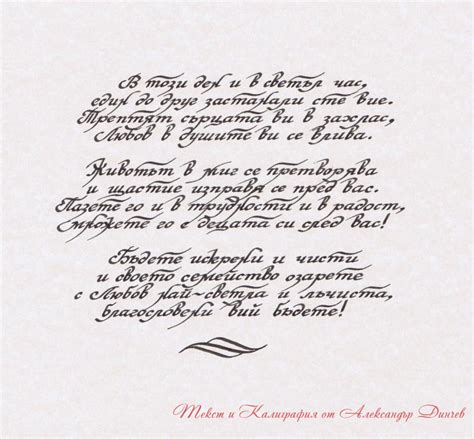 В този ден и в светъл час,
един до друг застанали сте вие.
Трептят сърцата ви в захлас,
Любов в душите ви се влива.
Животът в миг се претворява
и щастие изправя се пред вас.
Пазете го и в трудности и в радост,
множете го с децата си след вас!
Бъдете искрени и чисти
и своето семейство озарете
с Любов най-светла и лъчиста,
благословени вий бъдете!
Текст и Калиграфия от Александър Динчев